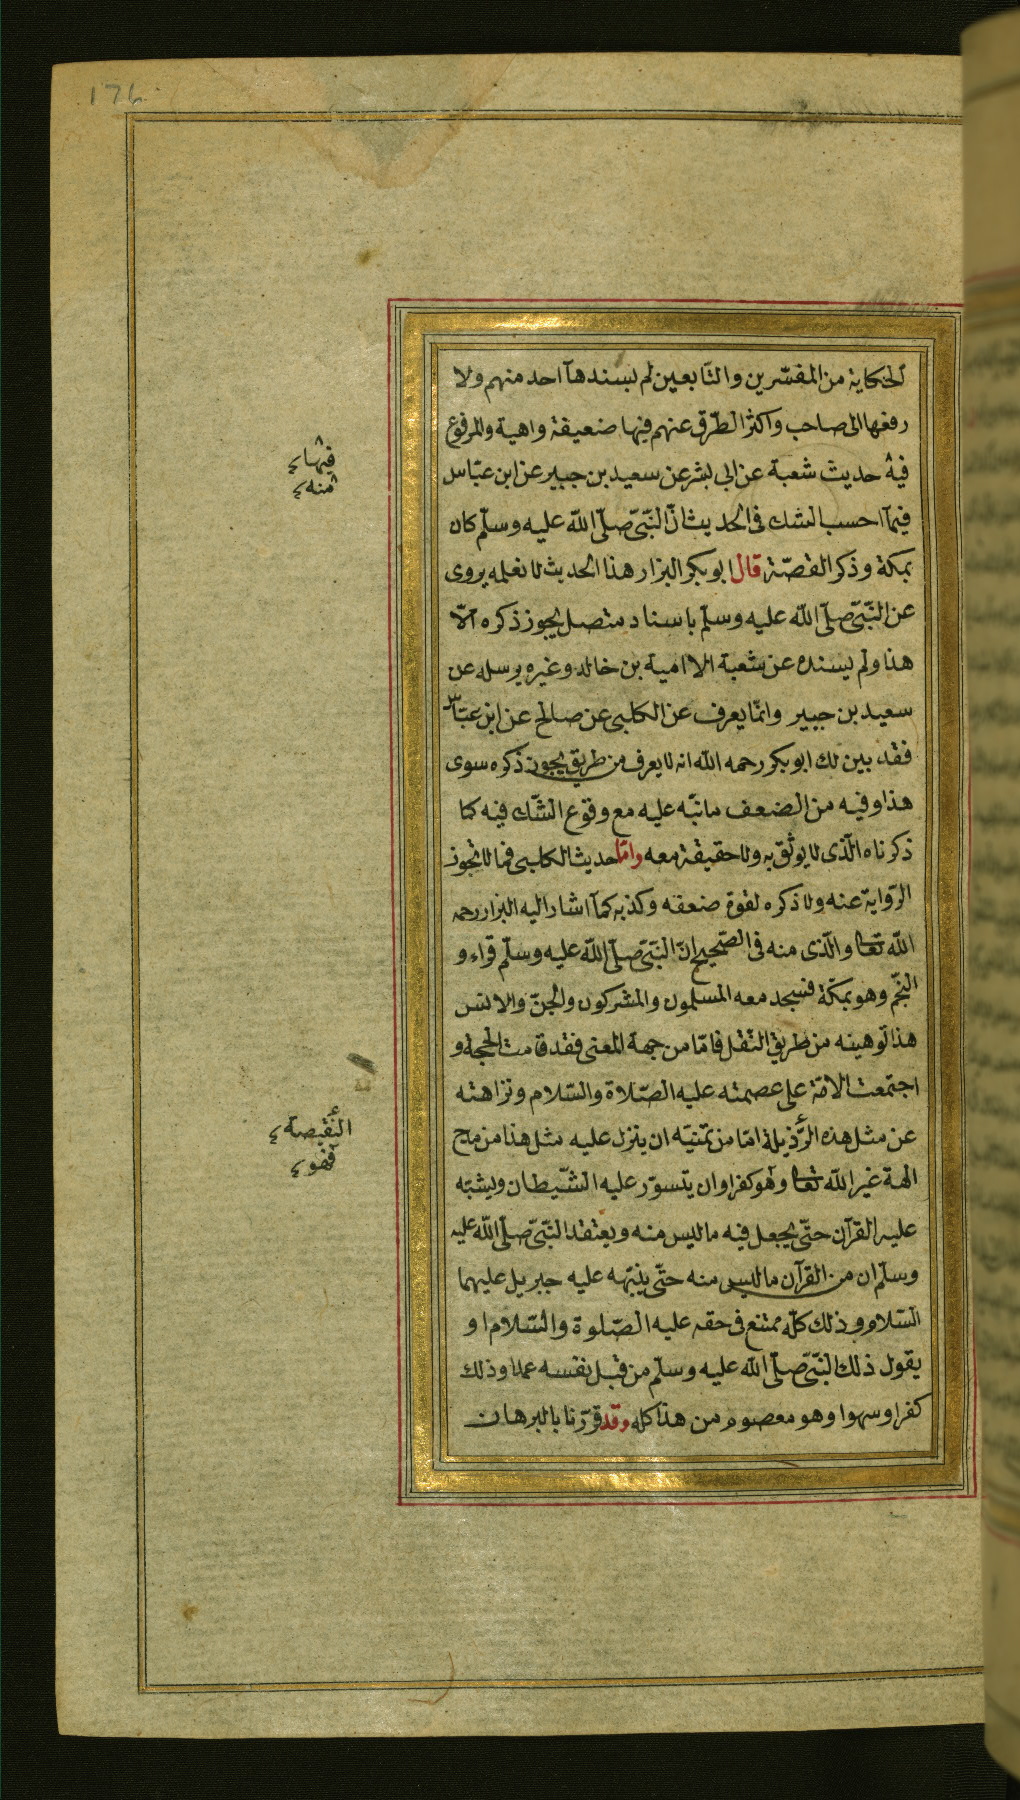 176
الحكاية من المفسّرين والتّابعين لم يسندها احد منهم ولا
رفعها الى صاحب واكثر الطّرق عنهم فيها ضعيفة واهية والمرفوع
فيه حديث شعبة عن ابى بشر عن سعيد بن جبير عن ابن عبّاس
فيمآ احسب الشك فى الحديث انّ النّبىّ صلّى اللّه عليه وسلّم كان
بمكة وذكر القصّة قال ابو بكر البزار هذا الحديث لا نعلمه يروى
عن النّبىّ صلّى اللّه عليه وسلّم باسناد متصل يجوز ذكره الّا
هذا ولم يسنده عن شعبة الا امية بن خالد وغيره يرسله عن
سعيد بن جبير وانّما يعرف عن الكلبى عن صالح عن ابن عبّاس
فقد بين لك ابو بكر رحمه اللّه انه لا يعرف من طريق يجوز ذكره سوى
هذا وفيه من الضعف ما نبّه عليه مع وقوع الشّك فيه كما
ذكرناه الّذى لا يوثق به ولا حقيقة معه وامّا حديث الكلبى فما لا تجوز
الرّواية عنه ولا ذكره لقوة ضعفه وكذبه كمآ اشار اليه البزار رحمه
اللّه تعالى والّذى منه فى الصّحيح انّ النّبىّ صلّى اللّه عليه وسلّم قراء و
النّجم وهو بمكّة فسجد معه المسلمون والمشركون والجنّ والانس
هذا توهينه من طريق النّقل فامّا من جهة المعنى فقد قامت الحجة و
اجتمعت الامّة على عصمته عليه الصّلاة والسّلام ونزاهته
عن مثل هذه الرّذيلة امّا من تمنّيه ان ينزل عليه مثل هذا من مدح
الهة غير اللّه تعالى وهو كفر او ان يتسوّر عليه الشّيطان ويشبّه
عليه القرآن حتّى يجعل فيه ما ليس منه ويعتقد النّبىّ صلّى اللّه عليه
وسلّم ان من القرآن ما ليس منه حتّى ينبّهه عليه جبريل عليهما
السّلام وذلك كلّه ممتنع فى حقه عليه الصّلوة والسّلام او
يقول ذلك النّبىّ صلّى اللّه عليه وسلّم من قبل نفسه عمدا وذلك
كفر او سهوا وهو معصوم من هذا كله وقد قرّرنا بالبرهان
فيها
منه
النّقيصة
فهو